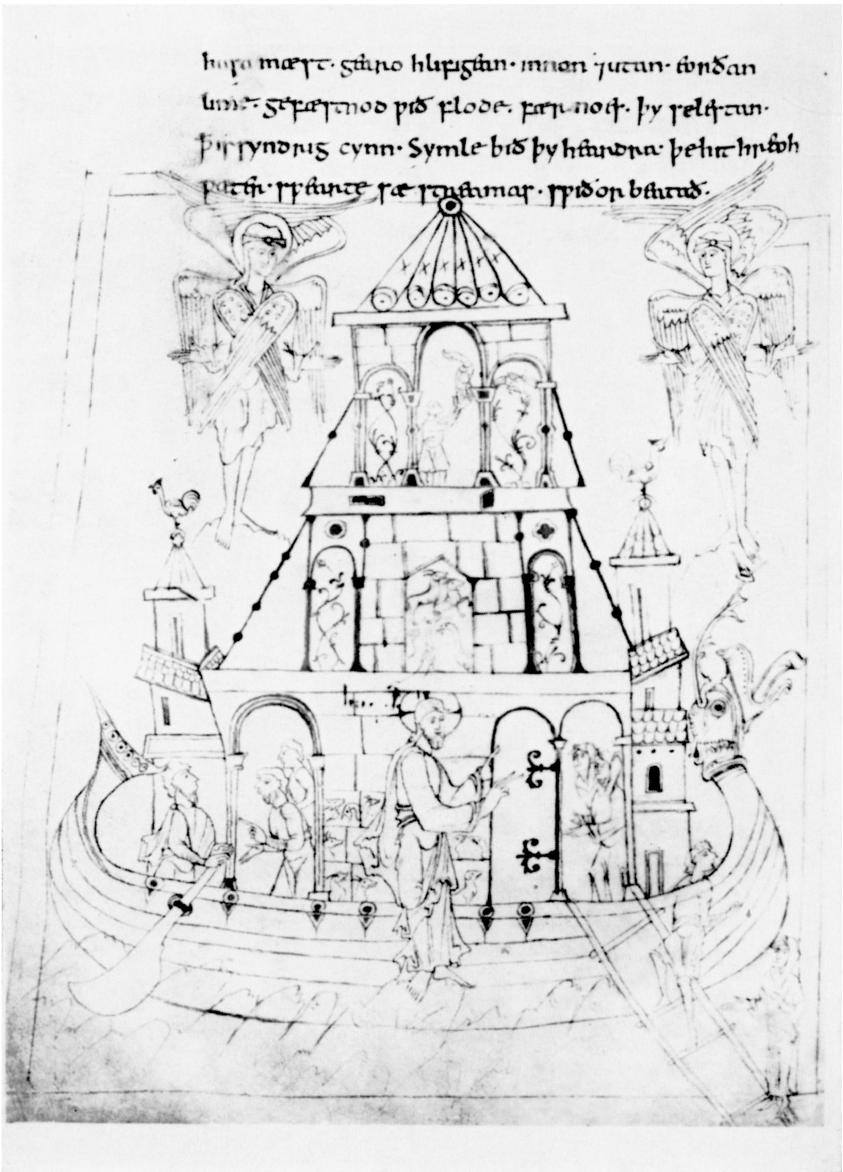 husa mæst· gearo hlifigean· innan ⁊utan· eorðan
lime· gefæstnod wið flode. fær noes· þy selestan·
þ is syndrig cynn· Symle bið þy heardra þe hit hreoh
wæter· swearte sæ streamas· swiðor beatað·